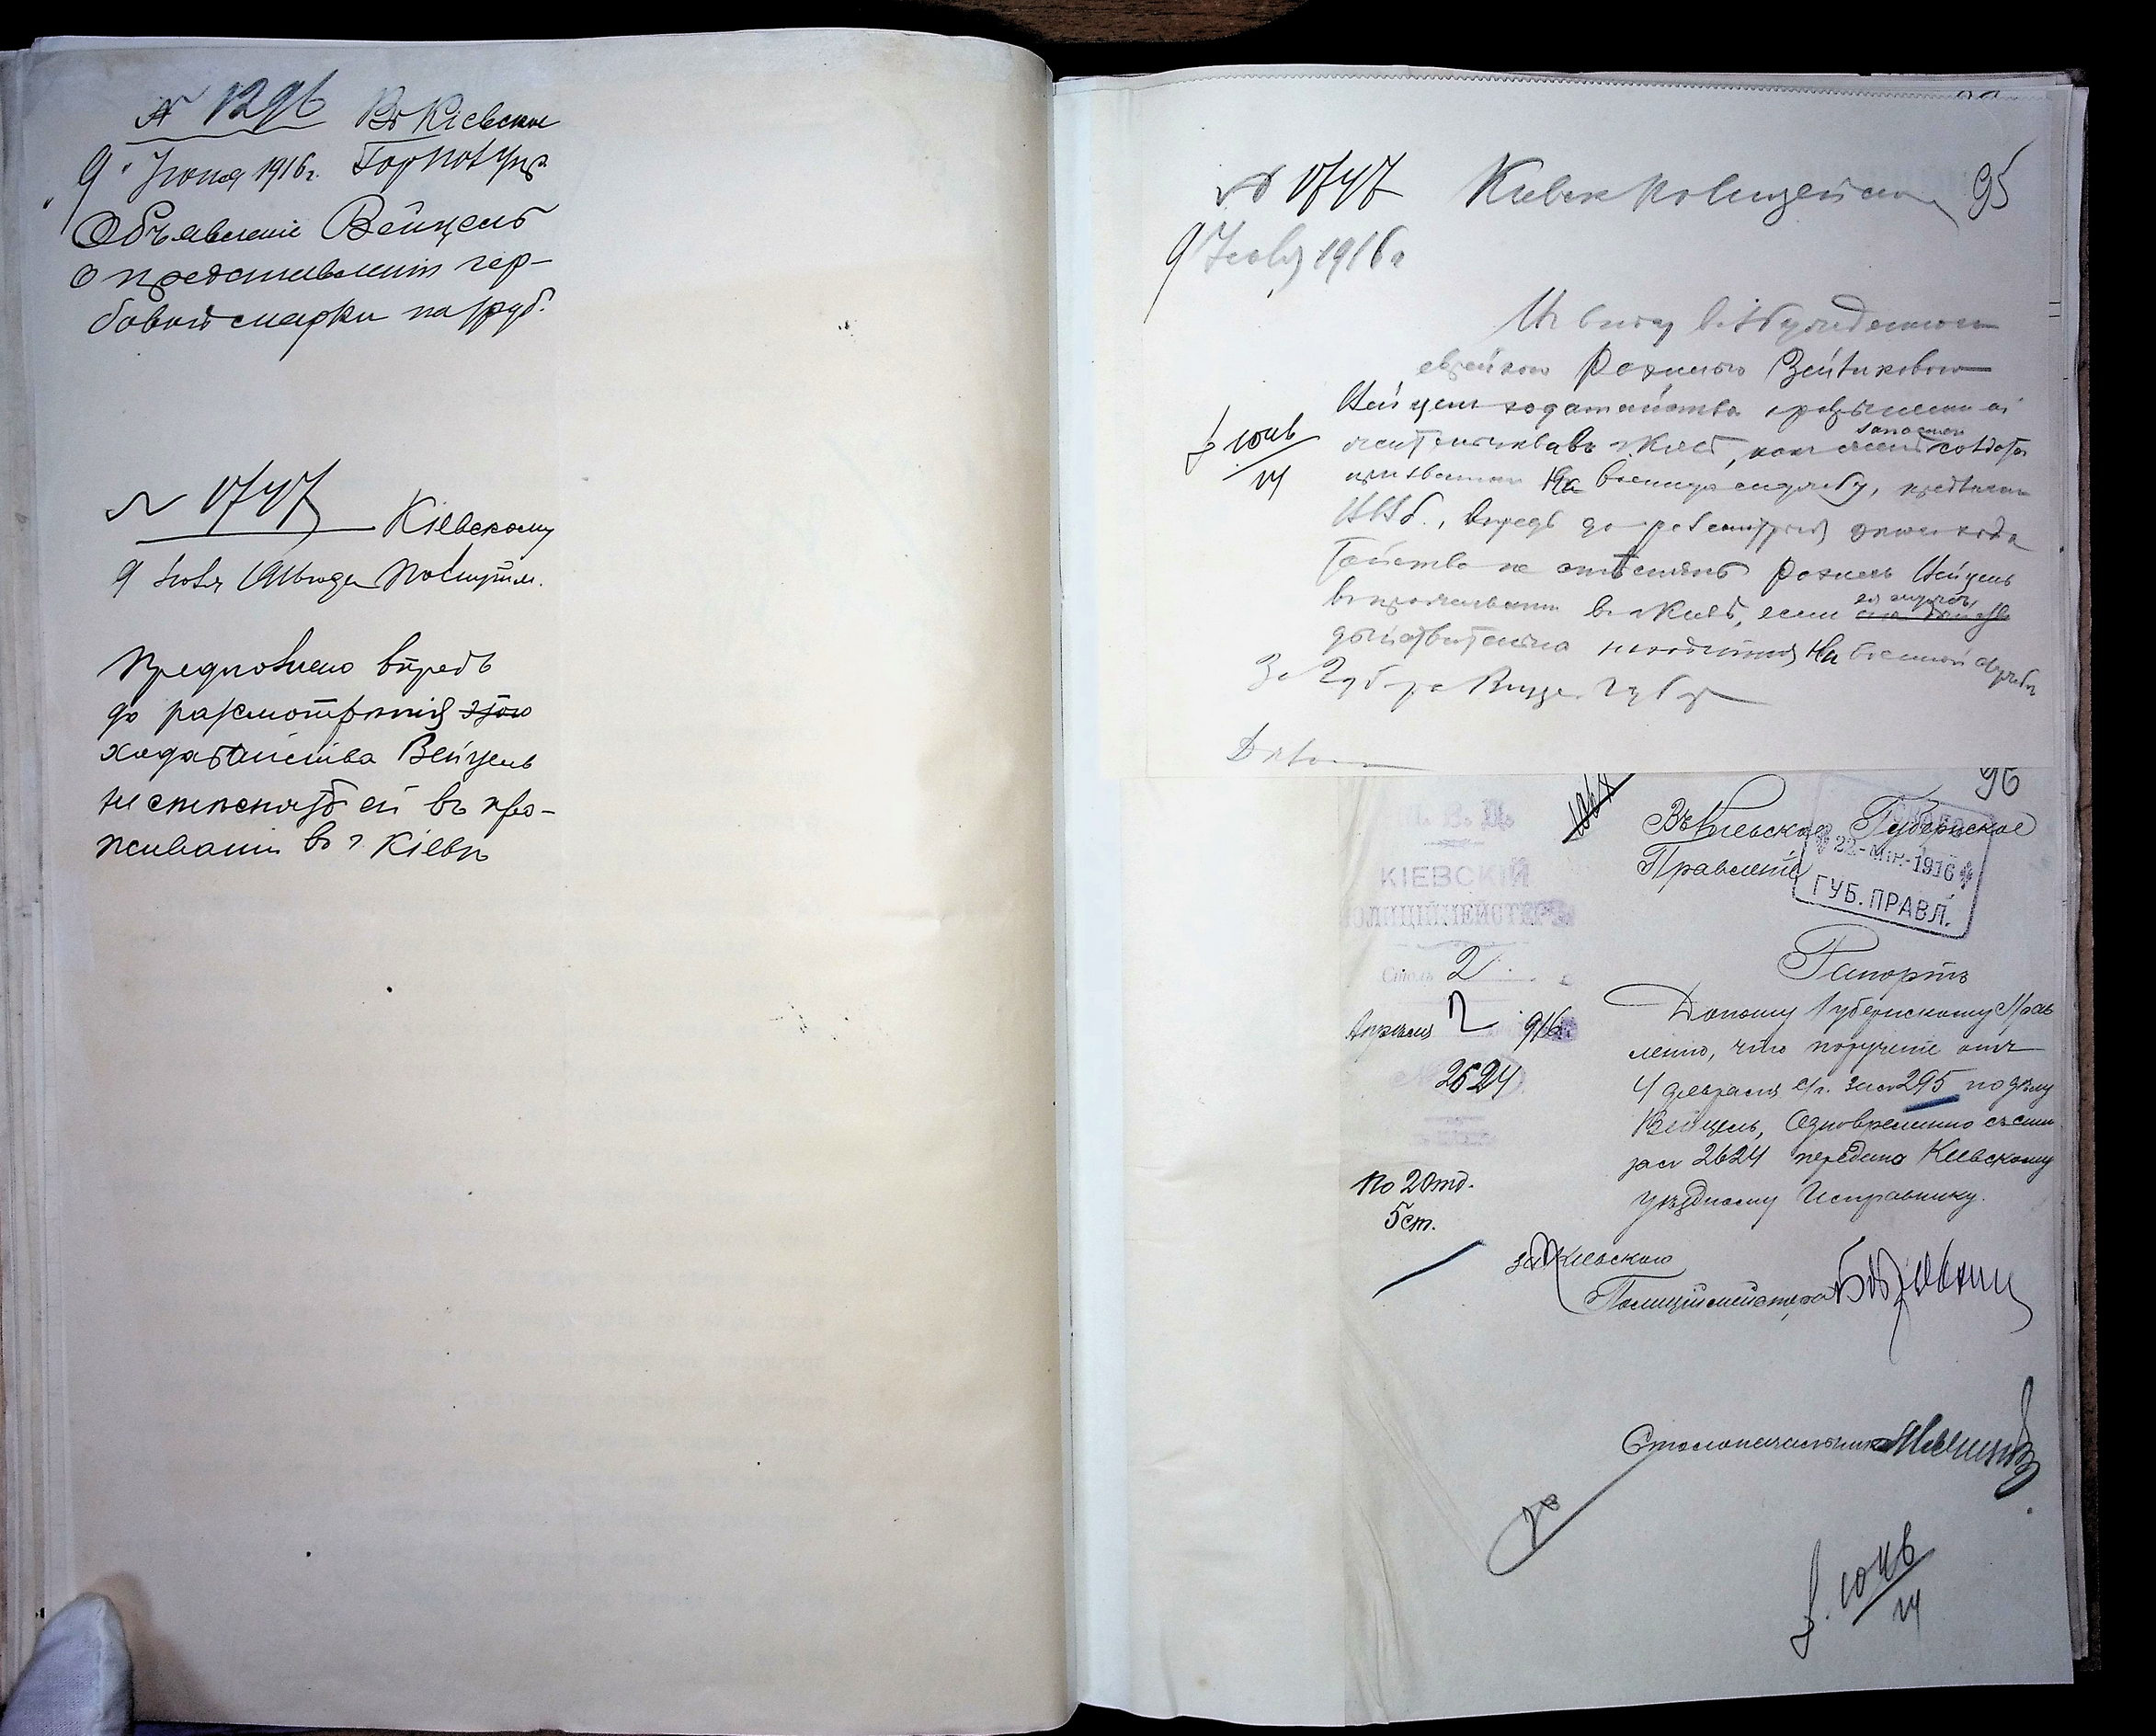 № 1296 Въ Кіевское
9 Іюня 1916 г. Гор Пол Упр.
Объявленіе Вейцель
о представленіи гер-
бовой марки на 1 руб.
№ 1747 Кіевскому
9 Полицейм.
Предложено впредь
до разсмотрѣнія этого
ходатайства Вейцель
не стѣснять ей въ про-
живаніи въ г Кіевѣ
№ 1747 Киевск Полицейм 95
9 1916 г
Въ виду возбужденнаго
еврейкою Рохлею
Вейцель ходатайства о разрѣшеніи ей
въ г. Киевѣ, как жене запасного солдата
призваннаго на военную службу, предлагаю
В.В.Б., впредь до разсмотрѣнія этого хода
тайства не стѣснять Рохлю Вейцель
въ проживании въ г. Киевѣ, если
дѣйствительно находится на военной службѣ
За Губ-ра Вице-Губ-р
96
М. В. Д.
КІЕВСКІЙ
ПОЛИЦІЙМЕЙСТЕРЪ
Столъ 2
Апрѣля 2 916 г.
№ 2624
По 2 отд.
5 ст.
Въ Кіевское Губернское
Правленіе
22-1916
ГУБ. ПРАВЛ.
Рапортъ
Доношу Губернскому Прав
ленію, что порученіе отъ
4 февраля с/г. за № 295 по дѣлу
Вейцель, одновременно съ симъ
за № 2624 передано Кіевскому
уѣздному Исправнику.
за Кіевскаго
Полиціймейстера
Столоначальникъ